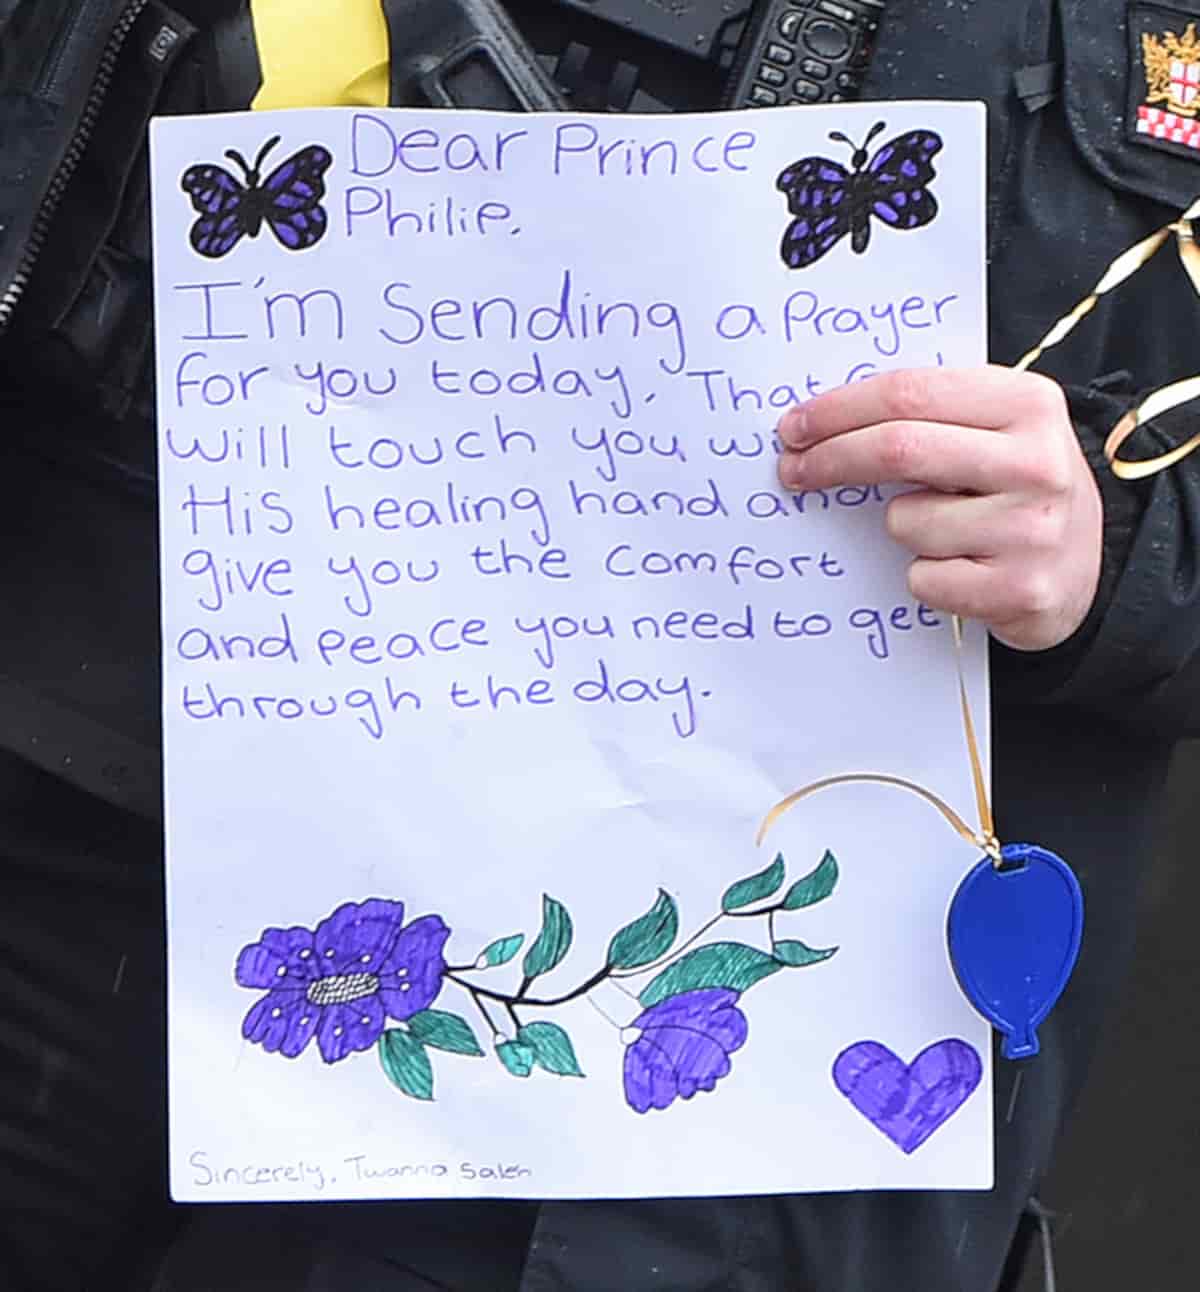 Dear Prince
Philip.
I'm Sending a Prayer
for you today. That
will touch you
His healing hand and
give you the comfort
and peace you need to get
through the day.
Sincerely, Twanna Salen